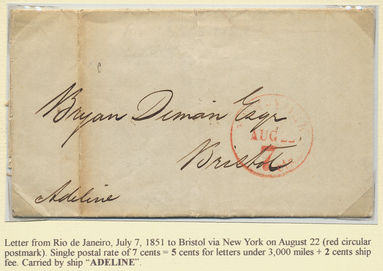 Bryan Diman Esqr
Bristol
Adeline
AUG 22
7
Letter from Rio de Janeiro, July 7, 1851 to Bristol via New York on August 22 (red circular
postmark). Single postal rate of 7 cents = 5 cents for letters under 3,000 miles + 2 cents ship
fee. Carried by ship "ADELINE".